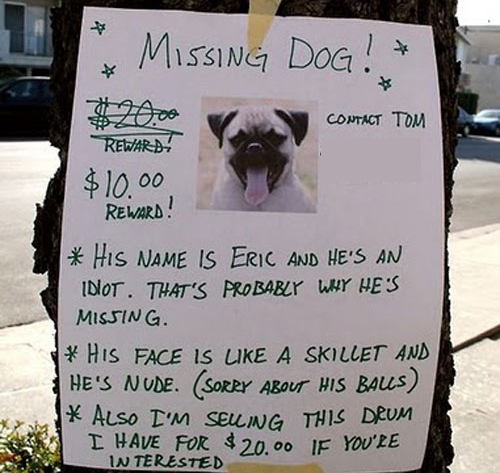 MISSING DOG!
$20.00
REWARD!
CONTACT TOM
$10.00
REWARD!
* HIS NAME IS ERIC AND HE'S AN
IDIOT. THAT'S PROBABLY WHY HE'S
MISSING.
* HIS FACE IS LIKE A SKILLET AND
HE'S NUDE. (SORRY ABOUT HIS BALLS)
* ALSO I'M SELLING THIS DRUM
I HAVE FOR $20.00 IF YOU'RE
INTERESTED